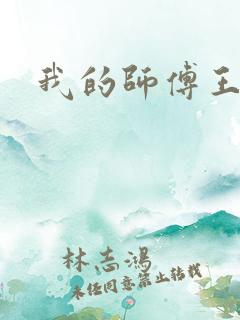 我的師傅王
林志鴻
未經同意禁止轉載